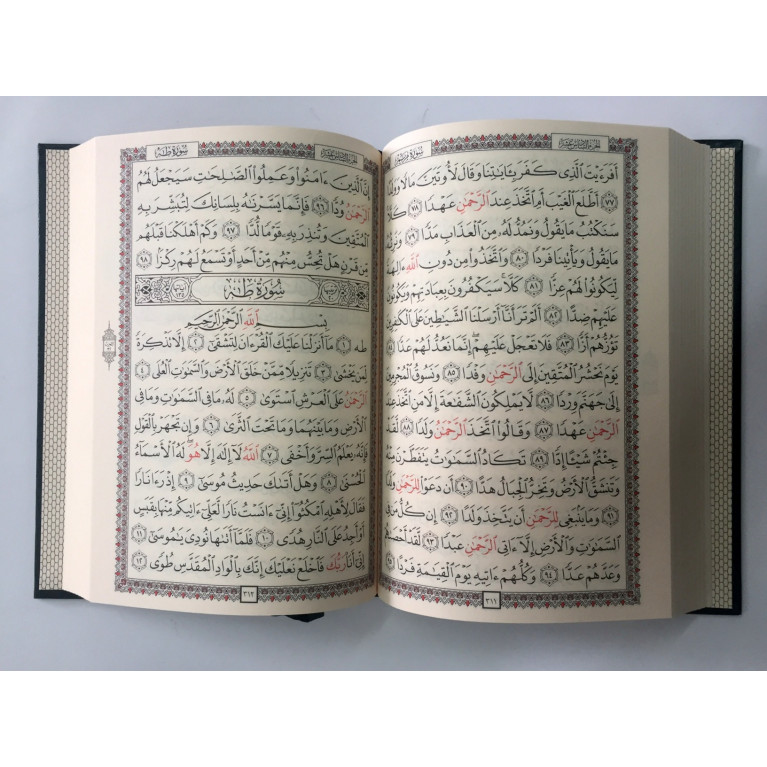 الجزء السادس عشر
سورة مريم
أَفَرَءَيْتَ ٱلَّذِى كَفَرَ بِـَٔايَـٰتِنَا وَقَالَ لَأُوتَيَنَّ مَالًا وَوَلَدًا
﴿٧٧﴾ أَطَّلَعَ ٱلْغَيْبَ أَمِ ٱتَّخَذَ عِندَ ٱلرَّحْمَـٰنِ عَهْدًا ﴿٧٨﴾ كَلَّا
سَنَكْتُبُ مَا يَقُولُ وَنَمُدُّ لَهُۥ مِنَ ٱلْعَذَابِ مَدًّا ﴿٧٩﴾ وَنَرِثُهُۥ
مَا يَقُولُ وَيَأْتِينَا فَرْدًا ﴿٨٠﴾ وَٱتَّخَذُوا۟ مِن دُونِ ٱللَّهِ ءَالِهَةً
لِّيَكُونُوا۟ لَهُمْ عِزًّا ﴿٨١﴾ كَلَّا ۚ سَيَكْفُرُونَ بِعِبَادَتِهِمْ وَيَكُونُونَ
عَلَيْهِمْ ضِدًّا ﴿٨٢﴾ أَلَمْ تَرَ أَنَّآ أَرْسَلْنَا ٱلشَّيَـٰطِينَ عَلَى ٱلْكَـٰفِرِينَ
تَؤُزُّهُمْ أَزًّا ﴿٨٣﴾ فَلَا تَعْجَلْ عَلَيْهِمْ ۖ إِنَّمَا نَعُدُّ لَهُمْ عَدًّا ﴿٨٤﴾
يَوْمَ نَحْشُرُ ٱلْمُتَّقِينَ إِلَى ٱلرَّحْمَـٰنِ وَفْدًا ﴿٨٥﴾ وَنَسُوقُ ٱلْمُجْرِمِينَ
إِلَىٰ جَهَنَّمَ وِرْدًا ﴿٨٦﴾ لَّا يَمْلِكُونَ ٱلشَّفَـٰعَةَ إِلَّا مَنِ ٱتَّخَذَ عِندَ
ٱلرَّحْمَـٰنِ عَهْدًا ﴿٨٧﴾ وَقَالُوا۟ ٱتَّخَذَ ٱلرَّحْمَـٰنُ وَلَدًا ﴿٨٨﴾ لَّقَدْ
جِئْتُمْ شَيْـًٔا إِدًّا ﴿٨٩﴾ تَكَادُ ٱلسَّمَـٰوَٰتُ يَتَفَطَّرْنَ مِنْهُ
وَتَنشَقُّ ٱلْأَرْضُ وَتَخِرُّ ٱلْجِبَالُ هَدًّا ﴿٩٠﴾ أَن دَعَوْا۟ لِلرَّحْمَـٰنِ وَلَدًا
﴿٩١﴾ وَمَا يَنۢبَغِى لِلرَّحْمَـٰنِ أَن يَتَّخِذَ وَلَدًا ﴿٩٢﴾ إِن كُلُّ مَن فِى
ٱلسَّمَـٰوَٰتِ وَٱلْأَرْضِ إِلَّآ ءَاتِى ٱلرَّحْمَـٰنِ عَبْدًا ﴿٩٣﴾ لَّقَدْ أَحْصَىٰهُمْ
وَعَدَّهُمْ عَدًّا ﴿٩٤﴾ وَكُلُّهُمْ ءَاتِيهِ يَوْمَ ٱلْقِيَـٰمَةِ فَرْدًا ﴿٩٥﴾
٣١١
الجزء السادس عشر
سورة طه
إِنَّ ٱلَّذِينَ ءَامَنُوا۟ وَعَمِلُوا۟ ٱلصَّـٰلِحَـٰتِ سَيَجْعَلُ لَهُمُ
ٱلرَّحْمَـٰنُ وُدًّا ﴿٩٦﴾ فَإِنَّمَا يَسَّرْنَـٰهُ بِلِسَانِكَ لِتُبَشِّرَ بِهِ
ٱلْمُتَّقِينَ وَتُنذِرَ بِهِۦ قَوْمًا لُّدًّا ﴿٩٧﴾ وَكَمْ أَهْلَكْنَا قَبْلَهُم
مِّن قَرْنٍ هَلْ تُحِسُّ مِنْهُم مِّنْ أَحَدٍ أَوْ تَسْمَعُ لَهُمْ رِكْزًۢا ﴿٩٨﴾
سُورَةُ طه
بِسْمِ ٱللَّهِ ٱلرَّحْمَـٰنِ ٱلرَّحِيمِ
طه ﴿١﴾ مَآ أَنزَلْنَا عَلَيْكَ ٱلْقُرْءَانَ لِتَشْقَىٰٓ ﴿٢﴾ إِلَّا تَذْكِرَةً
لِّمَن يَخْشَىٰ ﴿٣﴾ تَنزِيلًا مِّمَّنْ خَلَقَ ٱلْأَرْضَ وَٱلسَّمَـٰوَٰتِ ٱلْعُلَى ﴿٤﴾
ٱلرَّحْمَـٰنُ عَلَى ٱلْعَرْشِ ٱسْتَوَىٰ ﴿٥﴾ لَهُۥ مَا فِى ٱلسَّمَـٰوَٰتِ وَمَا فِى
ٱلْأَرْضِ وَمَا بَيْنَهُمَا وَمَا تَحْتَ ٱلثَّرَىٰ ﴿٦﴾ وَإِن تَجْهَرْ بِٱلْقَوْلِ
فَإِنَّهُۥ يَعْلَمُ ٱلسِّرَّ وَأَخْفَى ﴿٧﴾ ٱللَّهُ لَآ إِلَـٰهَ إِلَّا هُوَ ۖ لَهُ ٱلْأَسْمَآءُ
ٱلْحُسْنَىٰ ﴿٨﴾ وَهَلْ أَتَىٰكَ حَدِيثُ مُوسَىٰٓ ﴿٩﴾ إِذْ رَءَا نَارًا
فَقَالَ لِأَهْلِهِ ٱمْكُثُوٓا۟ إِنِّىٓ ءَانَسْتُ نَارًا لَّعَلِّىٓ ءَاتِيكُم مِّنْهَا بِقَبَسٍ
أَوْ أَجِدُ عَلَى ٱلنَّارِ هُدًى ﴿١٠﴾ فَلَمَّآ أَتَىٰهَا نُودِىَ يَـٰمُوسَىٰٓ ﴿١١﴾
إِنِّىٓ أَنَا۠ رَبُّكَ فَٱخْلَعْ نَعْلَيْكَ ۖ إِنَّكَ بِٱلْوَادِ ٱلْمُقَدَّسِ طُوًى ﴿١٢﴾
٣١٢